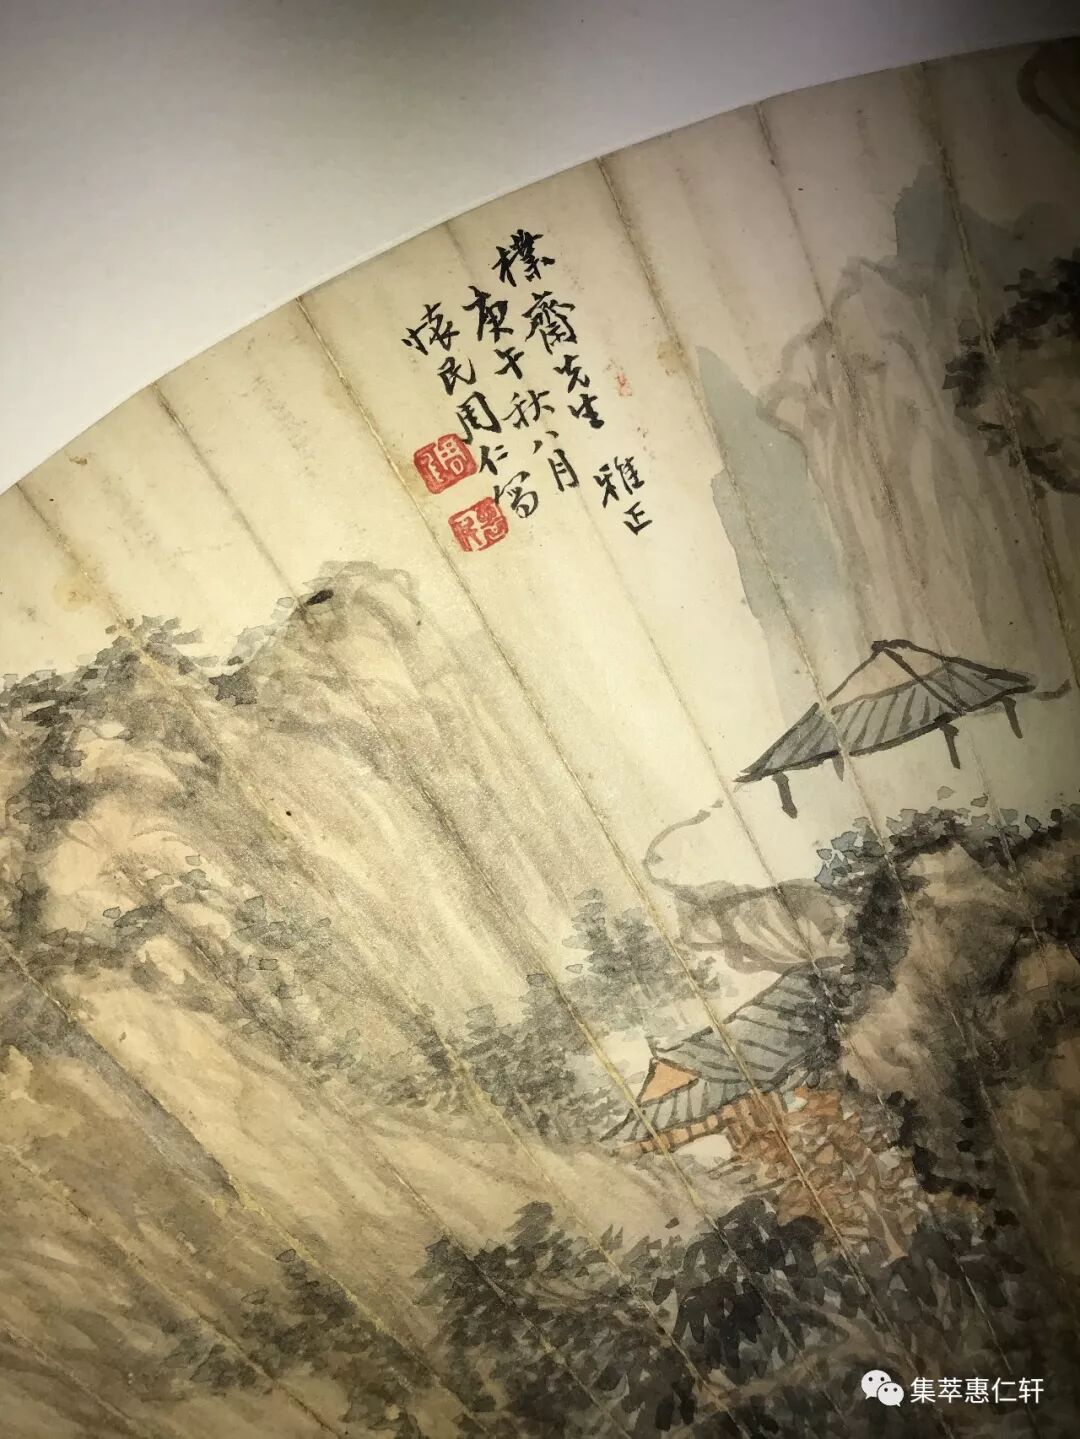 樸齋先生 雅正
庚午秋八月
懷民周仁寫
集萃惠仁轩